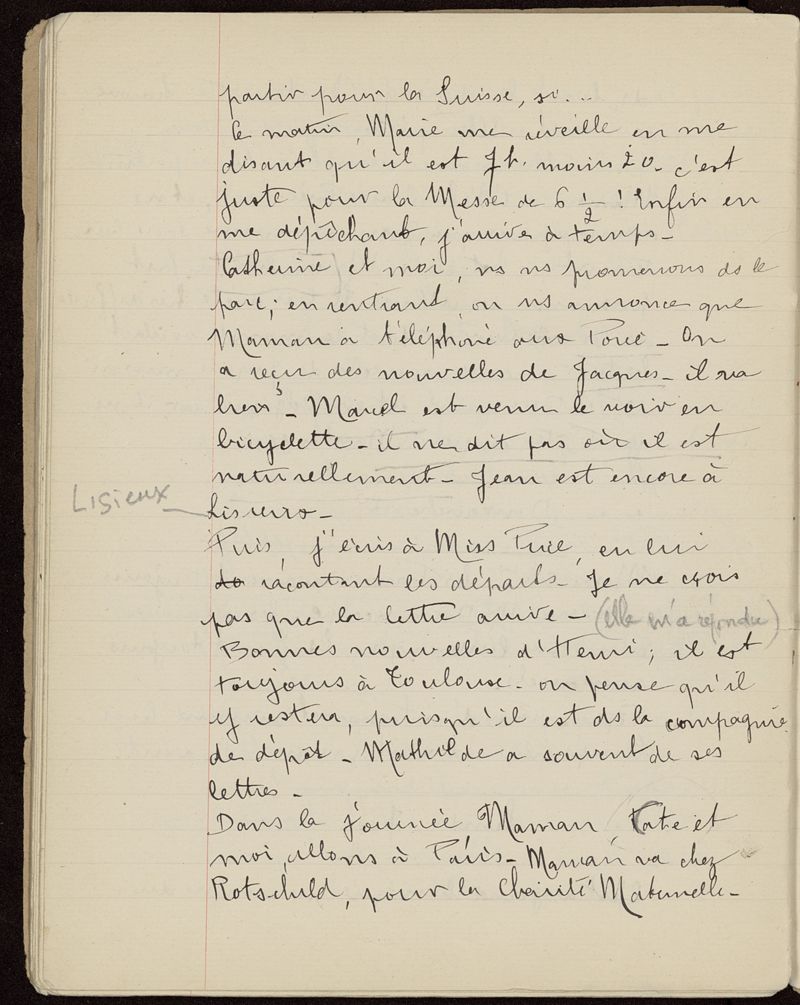 partir pour la Suisse, si...
le matin, Marie me réveille en me
disant qu'il est 7h. moins 20. c'est
juste pour la Messe de 6 1/2 ! Enfin en
me dépêchant, j'arrive à temps -
Catherine) et moi, ns ns promenons ds le
parc; en rentrant, on ns annonce que
Maman a téléphoné aux - On
a reçu des nouvelles de Jacques - il va
bien - Marcel est venu le voir en
bicyclette - il ne dit pas où il est
naturellement - Jean est encore à
Lisieux
Lisieux -
Puis, j'écris à Miss, en lui
racontant les départs - Je ne crois
pas que la lettre arrive - (elle m'a répondu)
Bonnes nouvelles d'Henri; il est
toujours à Toulouse - on pense qu'il
y restera, puisqu'il est ds la compagnie
de dépôt - Mathilde a souvent de ses
lettres -
Dans la journée, Maman, et
moi, allons à Paris - Maman va chez
Rotschild, pour la Charité Maternelle -